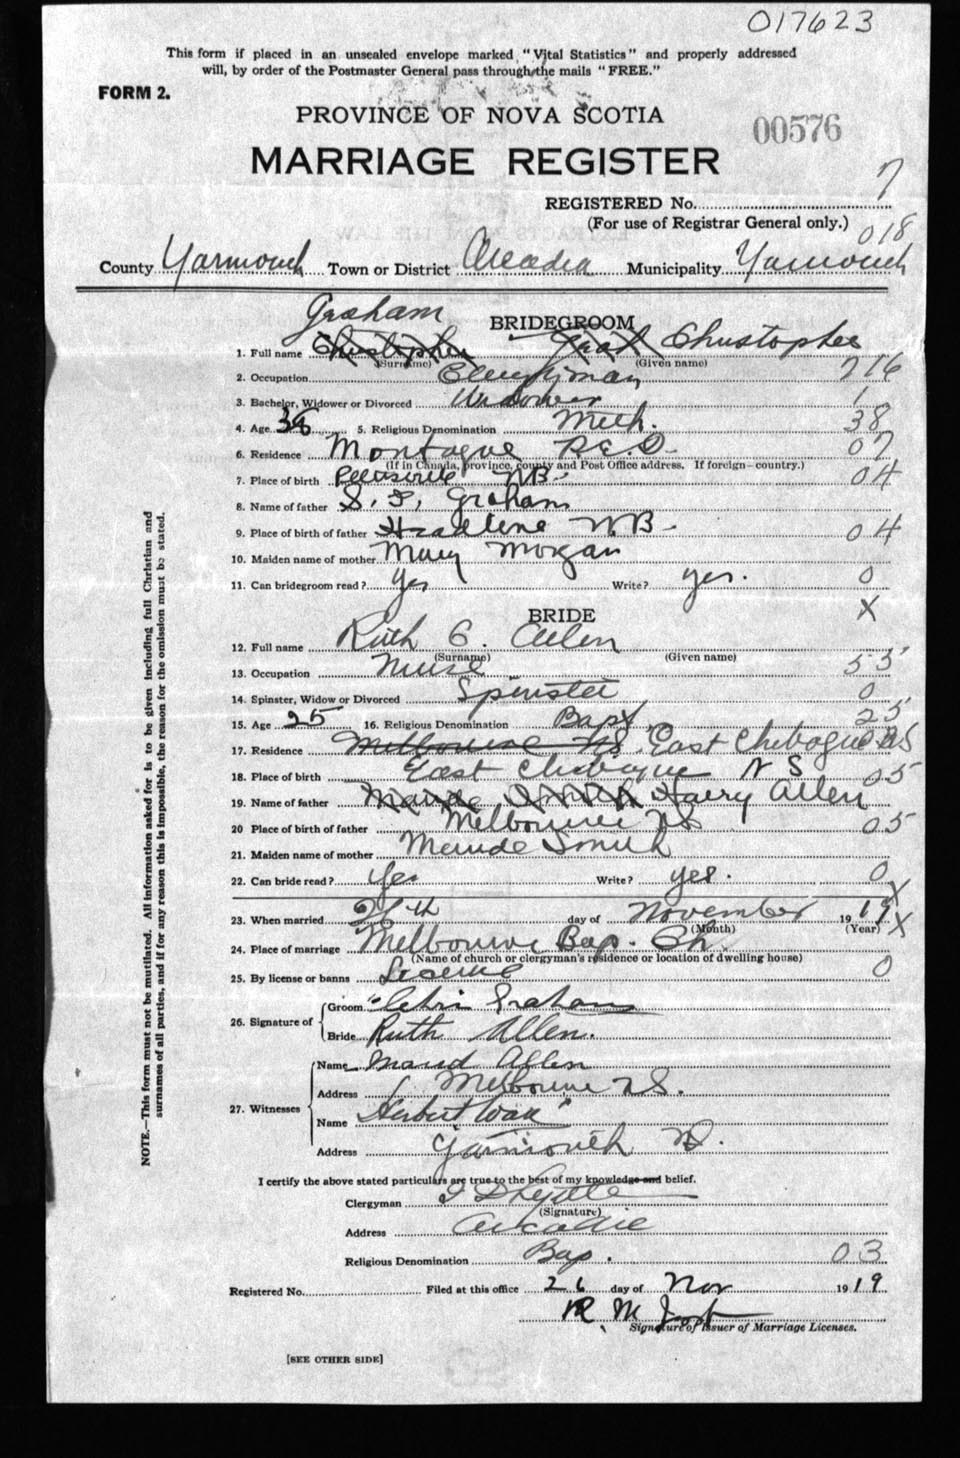 017623
This form if placed in an unsealed envelope marked "Vital Statistics" and properly addressed
will, by order of the Postmaster General pass through the mails "FREE."
FORM 2.
PROVINCE OF NOVA SCOTIA
00576
MARRIAGE REGISTER
7
REGISTERED No.
(For use of Registrar General only.)
018
County Yarmouth Town or District Arcadia Municipality Yarmouth
Graham
BRIDEGROOM
1. Full name Christopher Christopher
(Surname) (Given name)
2. Occupation Clergyman 216
3. Bachelor, Widower or Divorced Widower 1
4. Age 38 5. Religious Denomination Meth. 38
6. Residence Montague P.E.I. 07
(If in Canada, province, county and Post Office address. If foreign—country.)
7. Place of birth NB. 04
8. Name of father S. F. Graham
9. Place of birth of father NB 04
10. Maiden name of mother Mary Morgan
11. Can bridegroom read? yes Write? yes. 0
X
BRIDE
12. Full name Ruth C. Allen
(Surname) (Given name)
13. Occupation Nurse 55
14. Spinster, Widow or Divorced Spinster 0
15. Age 25 16. Religious Denomination Bapt 25
17. Residence Melbourne NS. East Chebogue NS
18. Place of birth East Chebogue N S 05
19. Name of father Maude Smith Harry Allen
20 Place of birth of father Melbourne NS 05
21. Maiden name of mother Maude Smith
22. Can bride read? yes Write? yes. 0
X
23. When married 26th day of November 1919 X
(Month) (Year)
24. Place of marriage Melbourne Bap. Ch.
(Name of church or clergyman's residence or location of dwelling house)
25. By license or banns License 0
26. Signature of
Groom Chris Graham
Bride Ruth Allen.
27. Witnesses
Name Maud Allen
Address Melbourne NS.
Name Herbert
Address Yarmouth NS.
I certify the above stated particulars are true to the best of my knowledge and belief.
Clergyman
(Signature)
Address
Religious Denomination Bap. 03
Registered No. Filed at this office 26 day of Nov 1919
R. M.
Signature of Issuer of Marriage Licenses.
[SEE OTHER SIDE]
NOTE.—This form must not be mutilated. All information asked for is to be given including full Christian and
surnames of all parties, and if for any reason this is impossible, the reason for the omission must be stated.